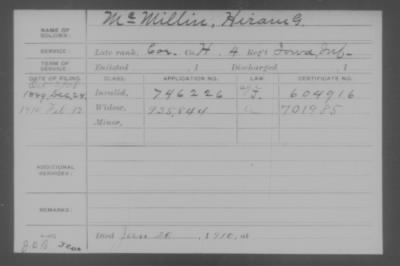 NAME OF SOLDIER: McMillin, Hiram G.
SERVICE: Late rank, Cor. Co. H, 4 Reg't Iowa Inf.
TERM OF SERVICE: Enlisted , 1 Discharged , 1
DATE OF FILING. CLASS. APPLICATION NO. LAW. CERTIFICATE NO.
1889 Invalid, 746226 604916
1910 Feb 12 Widow, 935,844 701985
Minor,
ADDITIONAL SERVICES:
REMARKS:
Died Jan 20, 1910, at